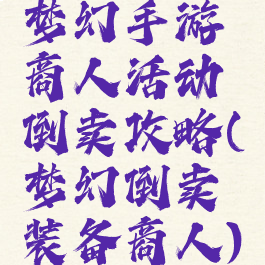 梦幻手游
商人活动
倒卖攻略(
梦幻倒卖
装备商人)